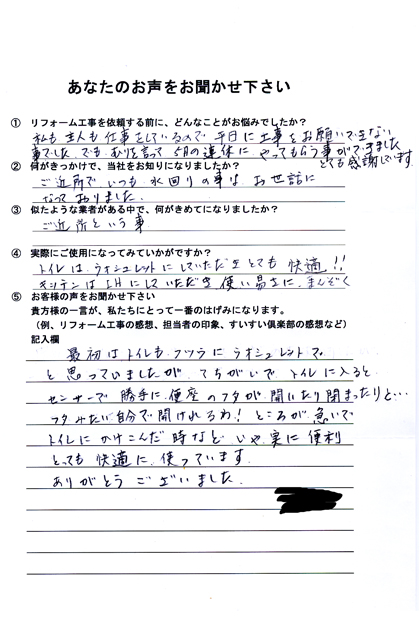 あなたのお声をお聞かせ下さい
① リフォーム工事を依頼する前に、どんなことがお悩みでしたか？
私も主人も仕事をしているので平日に工事をお願いできない
事でした。でも、むりを言って5月の連休にやってもらう事ができました
とても感謝しています
② 何がきっかけで、当社をお知りになりましたか？
ご近所で、いつも水回りの事はお世話に
なっておりました。
③ 似たような業者がある中で、何がきめてになりましたか？
ご近所という事
④ 実際にご使用になってみていかがですか？
トイレはウオシュレットにしていただきとても快適!!
キッチンはIHにしていただき使い易さに、まんぞく
⑤ お客様の声をお聞かせ下さい
貴方様の一言が、私たちにとって一番のはげみになります。
（例、リフォーム工事の感想、担当者の印象、すいすい倶楽部の感想など）
記入欄
最初はトイレもフツウにウオシュレットで
と思っていましたが、てちがいで、トイレに入ると、
センサーで勝手に便座のフタが開いたり閉まったりと…
フタみたい自分で開けれるわ！ところが急いで
トイレにかけこんだ時など、いや、実に便利
とっても快適に使っています。
ありがとうございました。